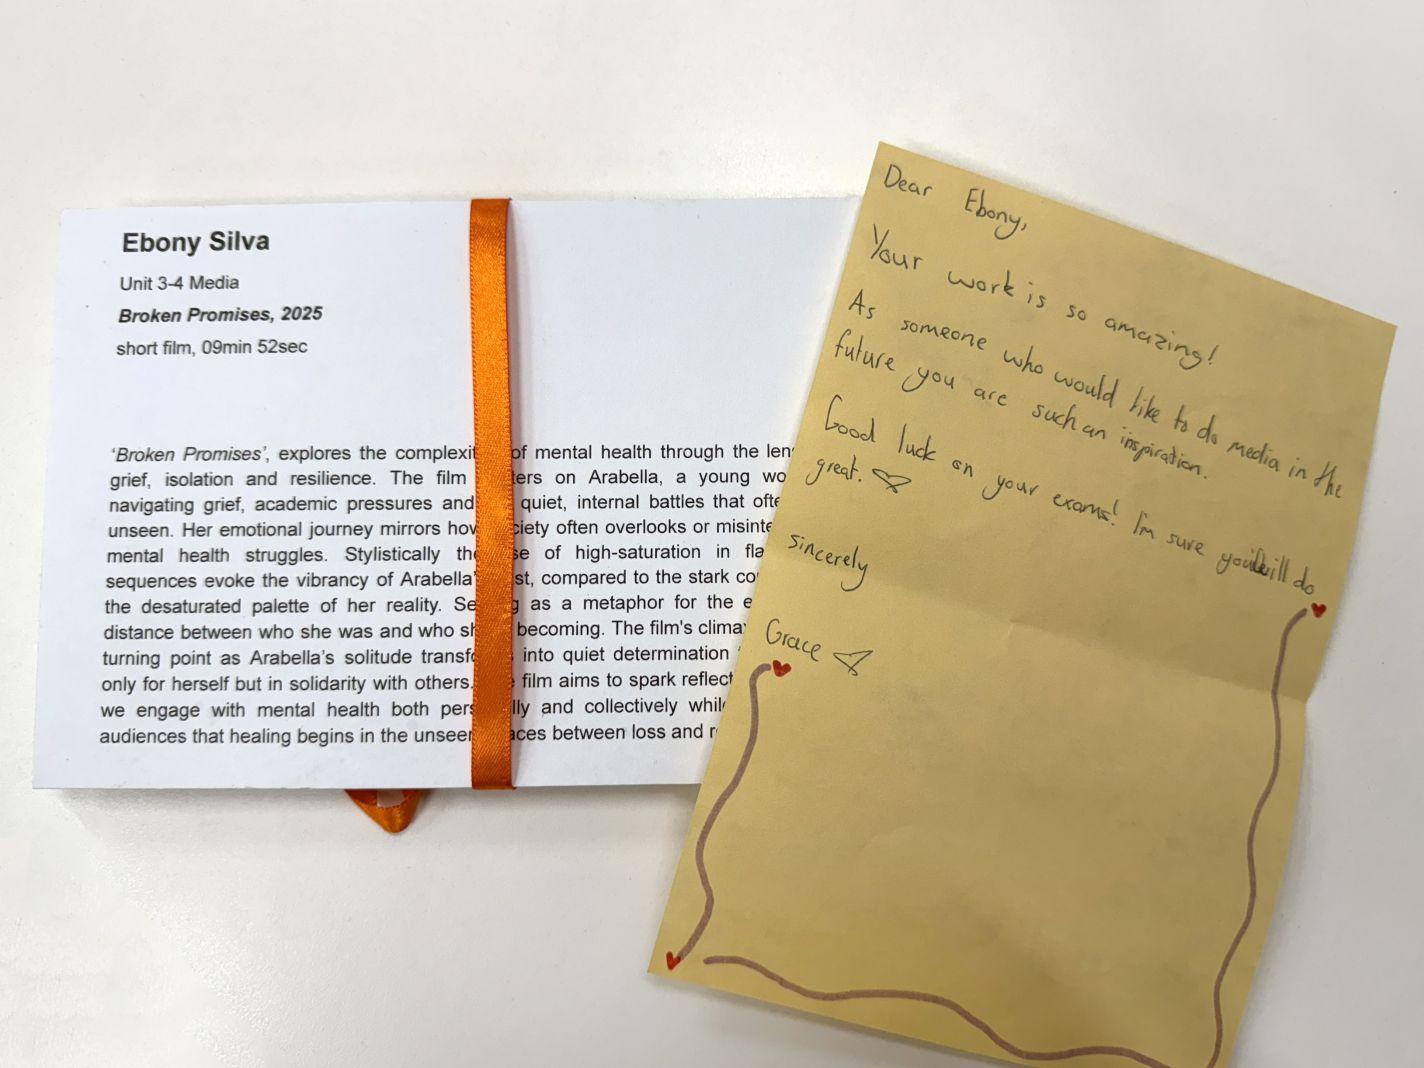 Ebony Silva
Unit 3-4 Media
Broken Promises, 2025
short film, 09min 52sec
'Broken Promises', explores the complexit of mental health through the len
grief, isolation and resilience. The film ters on Arabella, a young wo
navigating grief, academic pressures and quiet, internal battles that ofte
unseen. Her emotional journey mirrors how ciety often overlooks or misinte
mental health struggles. Stylistically the se of high-saturation in fla
sequences evoke the vibrancy of Arabella' st, compared to the stark co
the desaturated palette of her reality. Se g as a metaphor for the e
distance between who she was and who sh becoming. The film's clima
turning point as Arabella's solitude transfo into quiet determination
only for herself but in solidarity with others. film aims to spark reflect
we engage with mental health both pers lly and collectively whil
audiences that healing begins in the unseen aces between loss and r
Dear Ebony,
Your work is so amazing!
As someone who would like to do media in the
future you are such an inspiration.
Good luck on your exams! I'm sure you will do
great.
sincerely
Grace